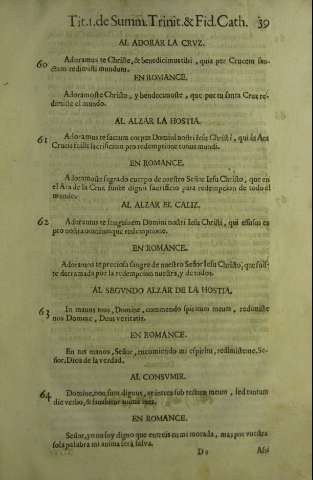 Tit. 1. de Summ. Trinit. & Fid. Cath. 39
AL ADORAR LA CRVZ.
60 Adoramus te Christe, & benedicimus tibi, quia per Crucem san-
ctam redimisti mundum.
EN ROMANCE.
Adoramoste Christo, y bendecimoste, que por tu santa Cruz re-
dimiste el mundo.
AL ALZAR LA HOSTIA.
61 Adoramus te sacrum corpus Domini nostri Iesu Christi, qui in Ara
Crucis fuisti sacrificium pro redemptione totius mundi.
EN ROMANCE.
Adoramoste sagrado cuerpo de nuestro Señor Iesu Christo, que en
el Ara de la Cruz fuiste digno sacrificio para redempcion de todo el
mundo.
AL ALZAR EL CALIZ.
62 Adoramus te sanguinem Domini nostri Iesu Christi, qui effusus es
pro nostra omniumque redemptione.
EN ROMANCE.
Adoramos te preciosa sangre de nuestro Señor Iesu Christo, que fuis-
te derramada por la redempcion nuestra, y de todos.
AL SEGVNDO ALZAR DE LA HOSTIA.
63 In manus tuas, Domine, commendo spiritum meum, redimiste
nos Domine, Deus veritatis.
EN ROMANCE.
En tus manos, Señor, encomiendo mi espiritu, redimistenos, Se-
ñor, Dios de la verdad.
AL CONSVMIR.
64 Domine, non sum dignus, ut intres sub tectum meum, sed tantum
dic verbo, & sanabitur anima mea.
EN ROMANCE.
Señor, yo no soy digno que entreis en mi morada, mas por vuestra
sola palabra mi anima será salva.
D 2 Assi